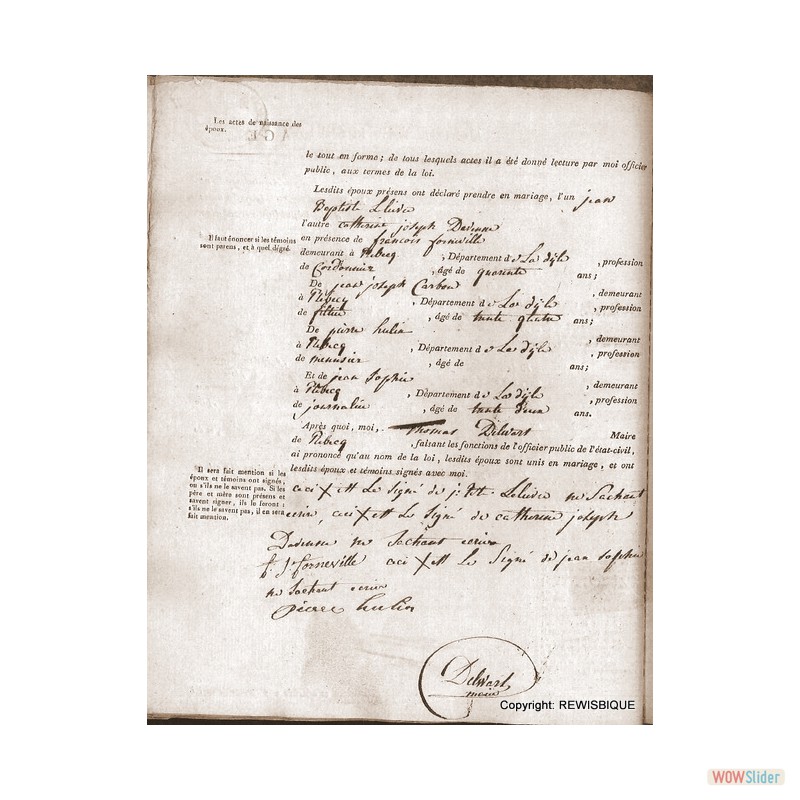 Les actes de naissance des
époux.
le tout en forme; de tous lesquels actes il a été donné lecture par moi officier
public, aux termes de la loi.
Lesdits époux présens ont déclaré prendre en mariage, l'un jean
Baptiste Lelievre
l'autre catherine joseph Davenne
Il faut énoncer si les témoins
sont parens, et à quel dégré.
en présence de francois forneville
demeurant à Rebecq , Département de La dyle , profession
de Cordonnier , âgé de quarente ans;
De jean joseph Carbon , demeurant
à Rebecq , Département de La dyle , profession
de , âgé de trente quatre ans;
De pierre hulin , demeurant
à Rebecq , Département de La dyle , profession
de menusier , âgé de ans;
Et de jean Sophie , demeurant
à Rebecq , Département de La dyle , profession
de journalier , âgé de trente deux ans.
Après quoi, moi, Thomas Delwart Maire
de Rebecq , faisant les fonctions de l'officier public de l'état-civil,
ai prononcé qu'au nom de la loi, lesdits époux sont unis en mariage, et ont
lesdits époux et témoins signés avec moi.
Il sera fait mention si les
époux et témoins ont signés,
ou s'ils ne le savent pas. Si les
père et mère sont présens et
savent signer, ils le feront:
s'ils ne le savent pas, il en sera
fait mention.
ceci X est Le Signé de j: Bt Lelievre ne Sachant
ecrire, ceci X est Le Signé de catherine joseph
Davenne ne Sachant ecrire
f. J. forneville ceci X est Le Signé de jean Sophie
ne Sachant ecrire
pierre hulin
Delwart
maire
Copyright: REWISBIQUE
WOWSlider